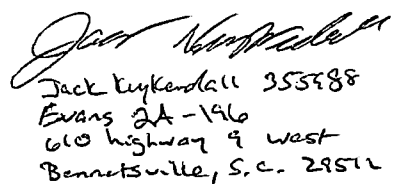 Jack Kuykendall
Jack Kuykendall 355988
Evans 2A-196
610 highway 9 west
Bennetsville, S.C. 29512